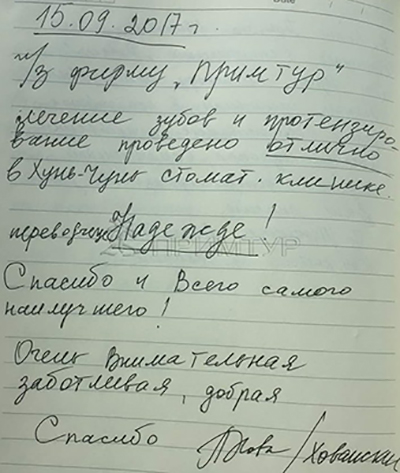 15.09.2017 г
ч/з фирму „Примтур"
лечение зубов и протезиро-
вание проведено отлично
в Хунь-Чунь стомат. клинике.
переводчице Надежде!
ПРИМТУР
Спасибо и Всего самого
наилучшего!
Очень внимательная
заботливая, добрая
Спасибо